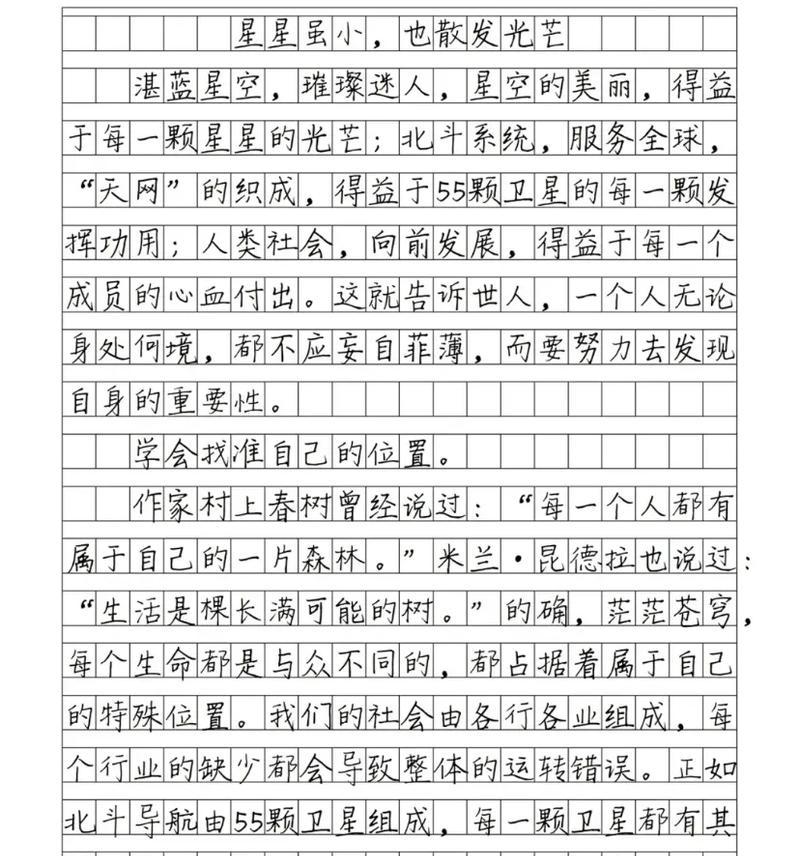 星星虽小，也散发光芒
湛蓝星空，璀璨迷人，星空的美丽，得益
于每一颗星星的光芒；北斗系统，服务全球，
“天网”的织成，得益于55颗卫星的每一颗发
挥功用；人类社会，向前发展，得益于每一个
成员的心血付出。这就告诉世人，一个人无论
身处何境，都不应妄自菲薄，而要努力去发现
自身的重要性。
学会找准自己的位置。
作家村上春树曾经说过：“每一个人都有
属于自己的一片森林。”米兰·昆德拉也说过：
“生活是棵长满可能的树。”的确，茫茫苍穹，
每个生命都是与众不同的，都占据着属于自己
的特殊位置。我们的社会由各行各业组成，每
个行业的缺少都会导致整体的运转错误。正如
北斗导航由55颗卫星组成，每一颗卫星都有其